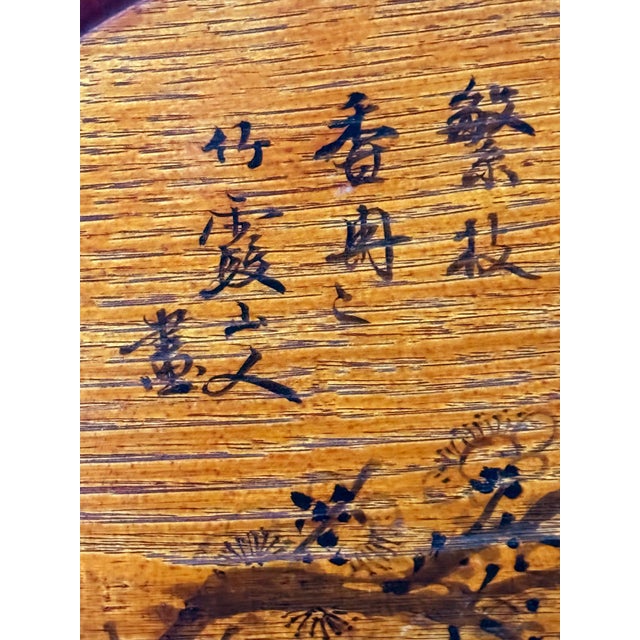 繁枝
香冉〻
竹霞山人
畫